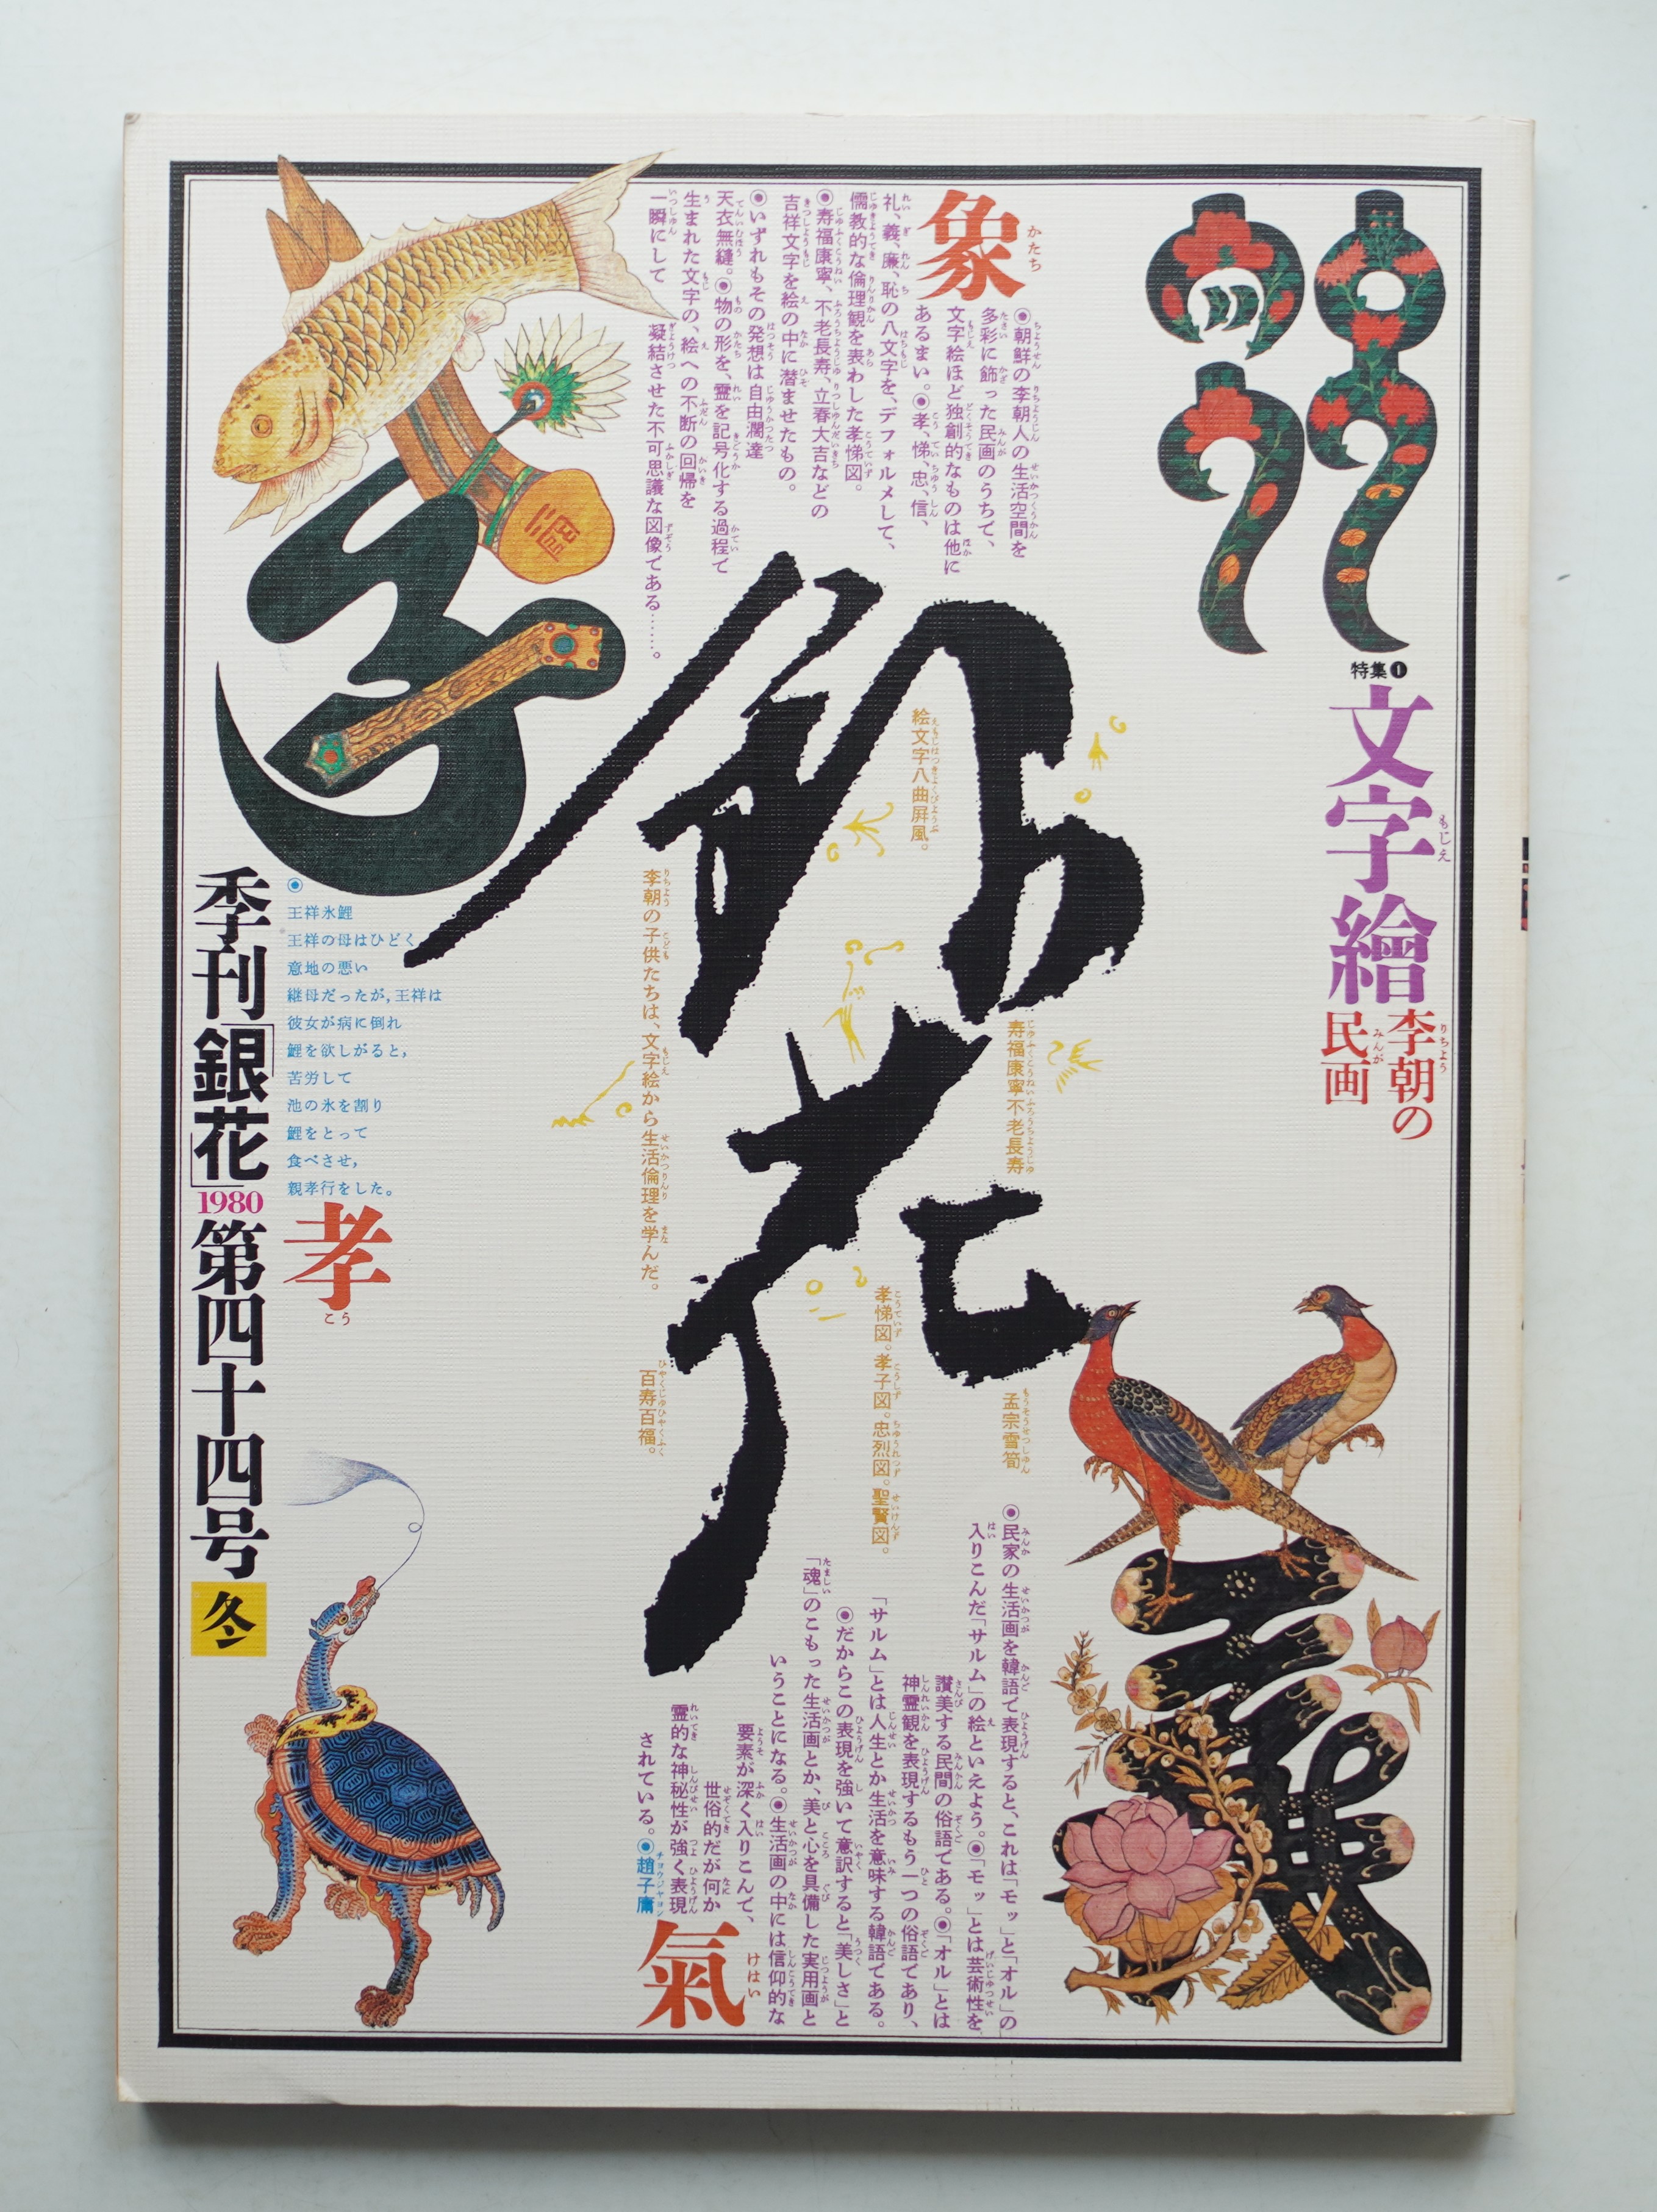 特集❶
文字繪
もじえ
李朝の
りちょう
民画
みんが
象
かたち
◉朝鮮の李朝人の生活空間を
多彩に飾った民画のうちで、
文字絵ほど独創的なものは他に
あるまい。◉孝、悌、忠、信、
礼、義、廉、恥の八文字を、デフォルメして、
儒教的な倫理観を表わした孝悌図。
◉寿福康寧、不老長寿、立春大吉などの
吉祥文字を絵の中に潜ませたもの。
◉いずれもその発想は自由濶達
天衣無縫。◉物の形を、霊を記号化する過程で
生まれた文字の、絵への不断の回帰を
一瞬にして 凝結させた不可思議な図像である……。
銀花
絵文字八曲屛風。
寿福康寧不老長寿
李朝の子供たちは、文字絵から生活倫理を学んだ。
孝悌図。孝子図。忠烈図。聖賢図。
孟宗雪筍
百寿百福。
◉
王祥氷鯉
王祥の母はひどく
意地の悪い
継母だったが,王祥は
彼女が病に倒れ
鯉を欲しがると,
苦労して
池の氷を割り
鯉をとって
食べさせ,
親孝行をした。
孝
こう
季刊「銀花」1980第四十四号冬
◉民家の生活画を韓語で表現すると、これは「モッ」と「オル」の
入りこんだ「サルム」の絵といえよう。◉「モッ」とは芸術性を
讃美する民間の俗語である。◉「オル」とは
神霊観を表現するもう一つの俗語であり、
「サルム」とは人生とか生活を意味する韓語である。
◉だからこの表現を強いて意訳すると「美しさ」と
「魂」のこもった生活画とか、美と心を具備した実用画と
いうことになる。◉生活画の中には信仰的な
要素が深く入りこんで、
世俗的だが何か
霊的な神秘性が強く表現
されている。◉趙子庸
チョウジャヨン
氣
けはい